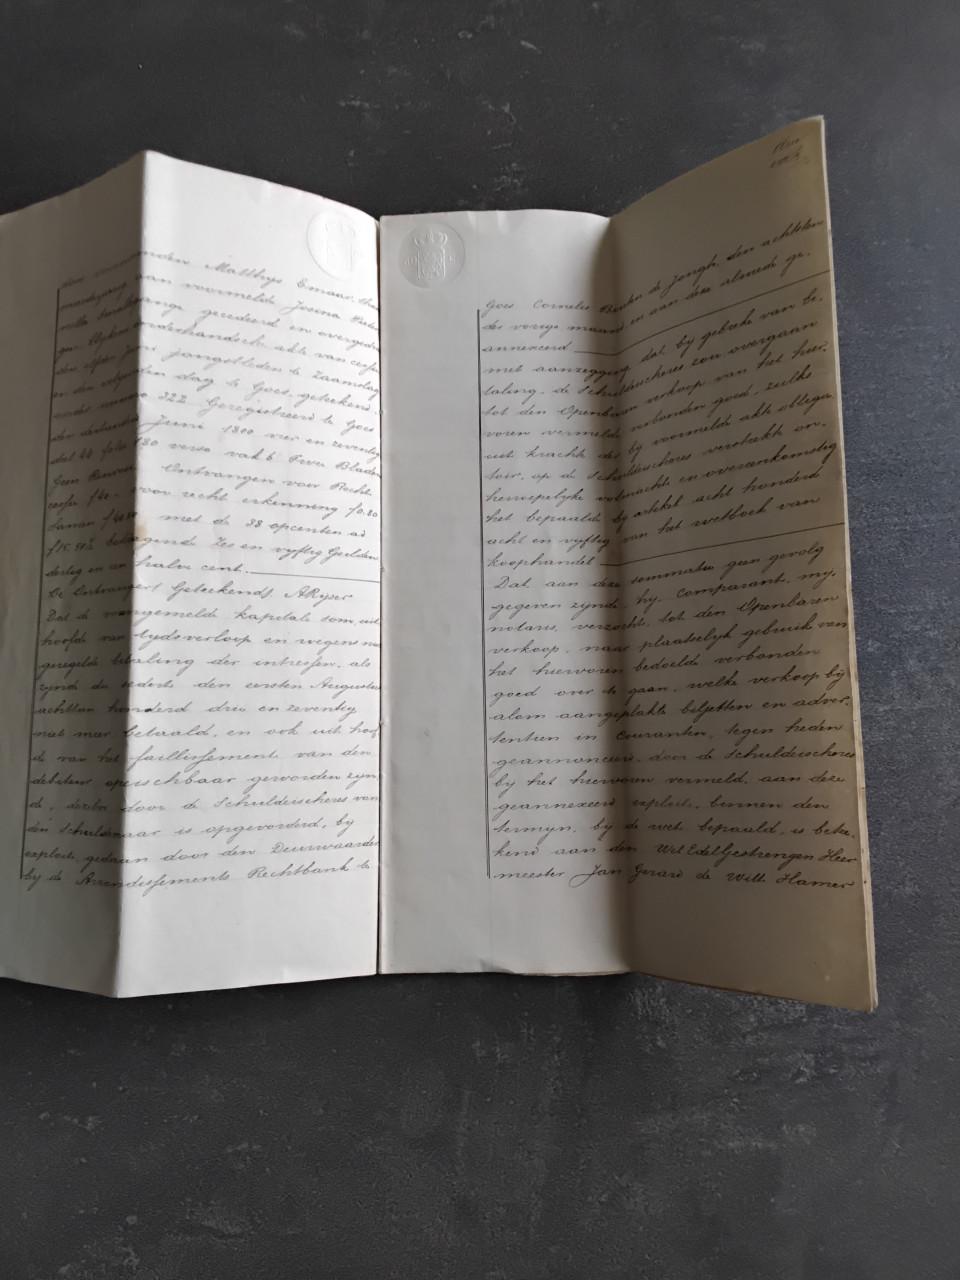 Matthys Emaas, thans
aan voormelde Josina Pieter
gecedeerd en overgedra
onderhandsch akte van cessie
Juni jongstleden te Zaamslag
en den volgenden dag te Goes, geteekend.
onder nummo 322 Geregistreerd te Goes
den dertienden Juni 1800 vier en zeventig
deel 44 folio 180 verso vak 6 Twee Bladen
Geen Renvooi Ontvangen voor Recht
cessie f40.- voor recht erkenning f0.80
samen f40.80 met de 38 opcenten ad
f15.50½ bedragende Zes en vyftig Gulden
dertig en een halve cent.
De Ontvanger (Geteekend) AKyser
Dat de voormelde kapitale som, uit
hoofde van tydsverloop en wegens na
geregelde betaling der intressen, als
zynde die sederts den eersten Augustus
achttien honderd drie en zeventig
niet meer betaald, en ook uit hoof
de van het faillissement van den
debiteur opeischbaar geworden zyn
de, dezelve door de Schuldeischeres van
den Schuldenaar is opgevorderd, by
exploit, gedaan door den Deurwaarder
by de Arrondissements Rechtbank te
Goes Cornelis de Jongh, den achtsten
der vorige maand en aan deze almede ge-
annexeerd
met aanzegging, dat by gebreke van be-
taling, de Schuldeischeres zou overgaan
tot den Openbaren verkoop van het hier-
voren vermelde verbonden goed, zulks
uit kracht der by voormelde akte obliga-
toir, op de Schuldeischeres verstrekte on-
herroepelyke volmacht en overeenkomstig
het bepaalde by artikel acht honderd
acht en vyftig van het wetboek van
koophandel
Dat aan deze sommatie geen gevolg
gegeven zynde, hy, comparant, my,
notaris, verzocht, tot den Openbaren
verkoop, naar plaatselyk gebruik van
het hiervoren bedoelde verbonden
goed over te gaan, welke verkoop by
alom aangeplakte biljetten en adver-
tentien in couranten, tegen heden
geannonceerd, door de Schuldeischeres
by het hiervoren vermeld, aan deze
geannexeerd exploit, binnen den
termyn, by de wet bepaald, is bete-
kend aan den WelEdelGestrengen Heer
meester Jan Gerard de Witt Hamer